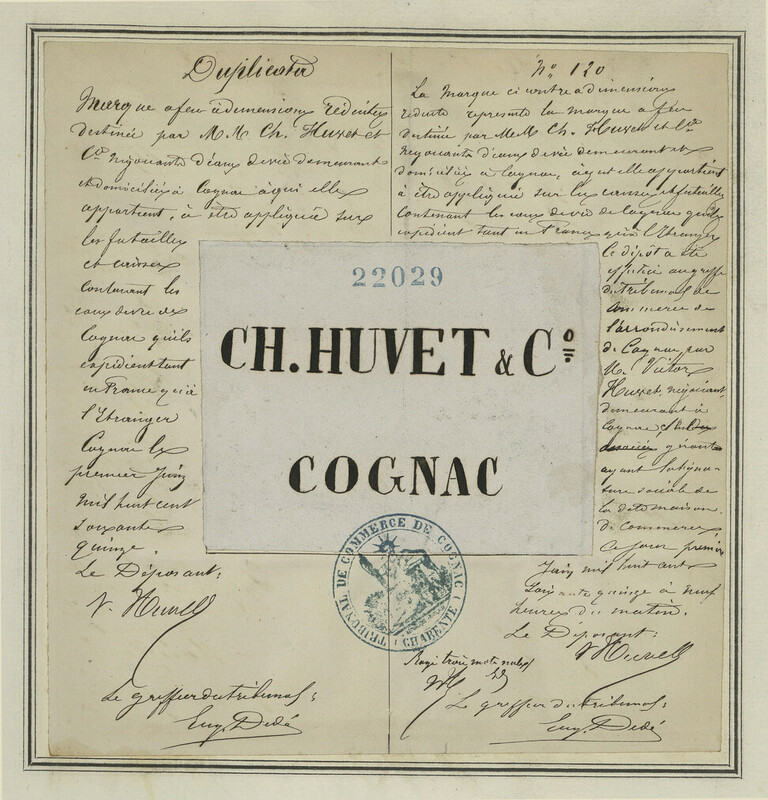 Duplicata
Marque a feu à dimensions réduites
destinée par M.M. Ch. Huvet et
Cie négociants d'eaux de vie demeurant
et domiciliés à Cognac à qui elle
appartient, à être appliquée sur
les futailles
et caisses
contenant les
eaux de vie de
Cognac qu'ils
expédient tant
en France qu'à
l'Etranger
Cognac le
premier Juin
mil huit cent
soixante
quinze.
Le Déposant:
V. Huvet
Le greffier du tribunal:
Eug. Dedé
No 120
La Marque ci contre a dimensions
réduite représente la marque a feu
destinée par M.M. Ch. Huvet et Cie
négociants d'eaux de vie demeurant et
domiciliés à Cognac, à qui elle appartient
à être appliquée sur les caisses et futailles
contenant les eaux de vie de Cognac qu'ils
expédient tant en France qu'à l'Etranger
le dépôt a été
effectué au greffe
du tribunal de
commerce de
l'arrondissement
de Cognac par
M. Victor
Huvet, négociant
demeurant à
Cognac
gérant
ayant la signa-
ture sociale de
la dite maison
de commerce
ce jour premier
Juin mil huit cent
soixante quinze à neuf
heures du matin.
Le Déposant:
V Huvet
Rayé trois mots nuls
Le greffier du tribunal:
Eug. Dedé
22029
CH. HUVET & Co.
COGNAC
TRIBUNAL DE COMMERCE DE COGNAC
CHARENTE